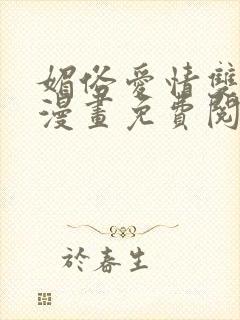 媚俗愛情雙
漫畫免費閱
於春生